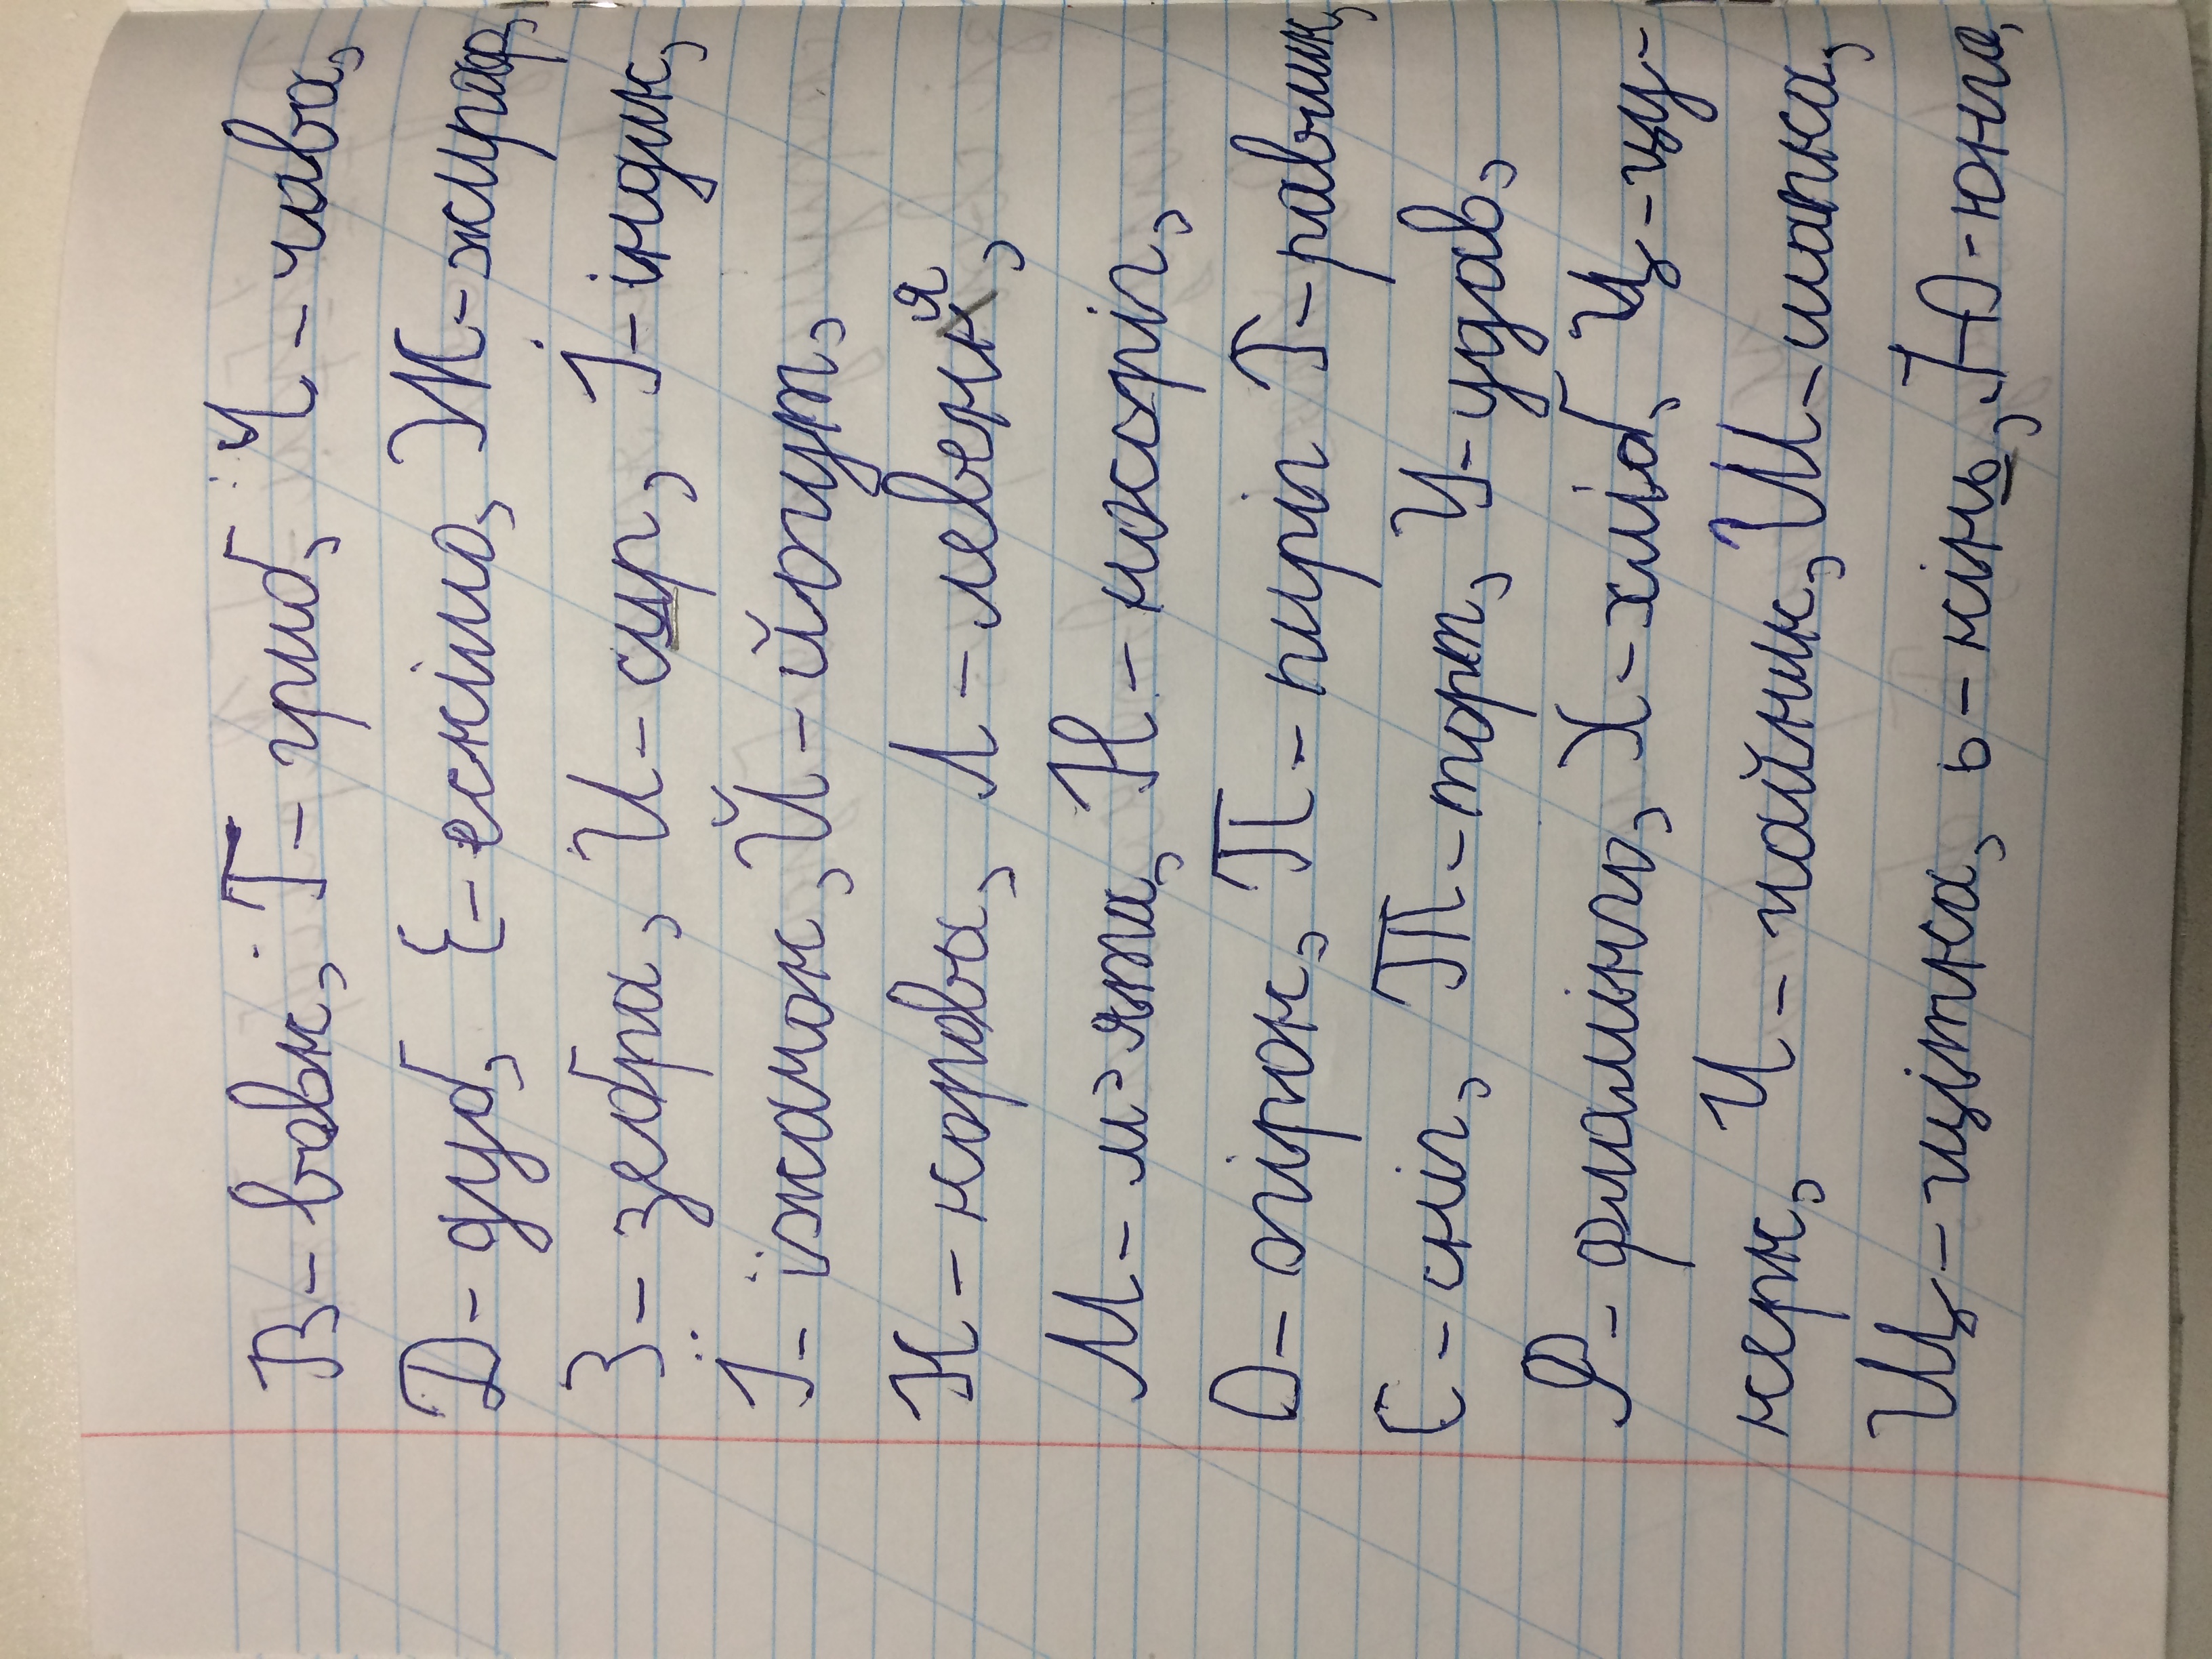 В - вовк, Г - гриб, Ґ - ґава,
Д - дуб, Е - ескімо, Ж - жираф,
З - зебра, И - сир, І - індик,
Ї - їжачок, Й - йогут,
К - корова, Л - левеня,
М - м'ята, Н - носоріг,
О - огірок, П - пиріг Р - равлик,
С - сніг, Т - торт, У - удав,
Ф - фламінго, Х - хліб, Ц - цу-
керк, Ч - чайник, Ш - шапка,
Щ - щітка, ь - кінь, Ю - юнга,